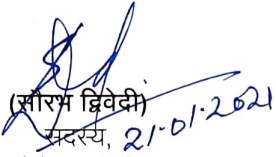 (सौरभ द्विवेदी)
सदस्य, 21-01-2021